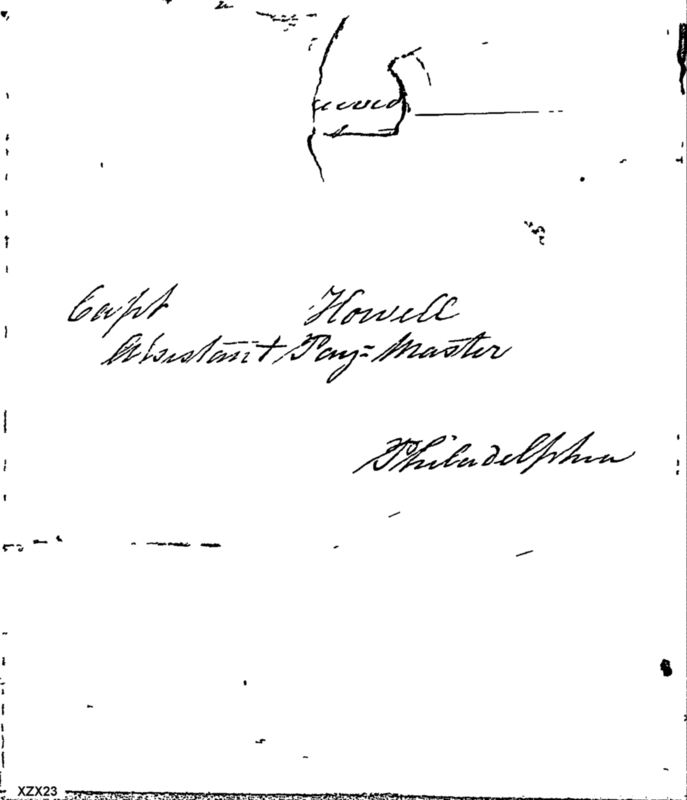 Capt Howell
Assistant Pay=Master
Philadelphia
XZX23